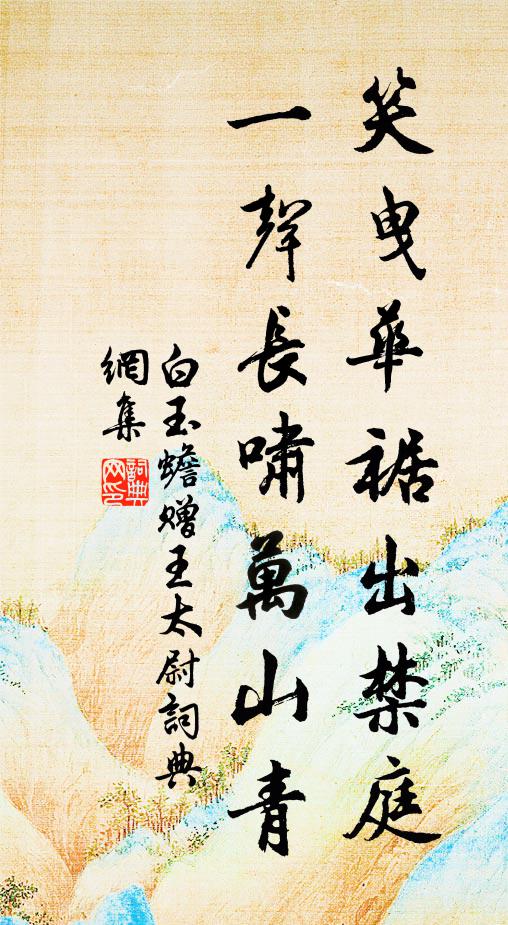 笑曳華裾出禁庭
一聲長嘯萬山青
白玉蟾贈王太尉詞典
網集
詞典網印